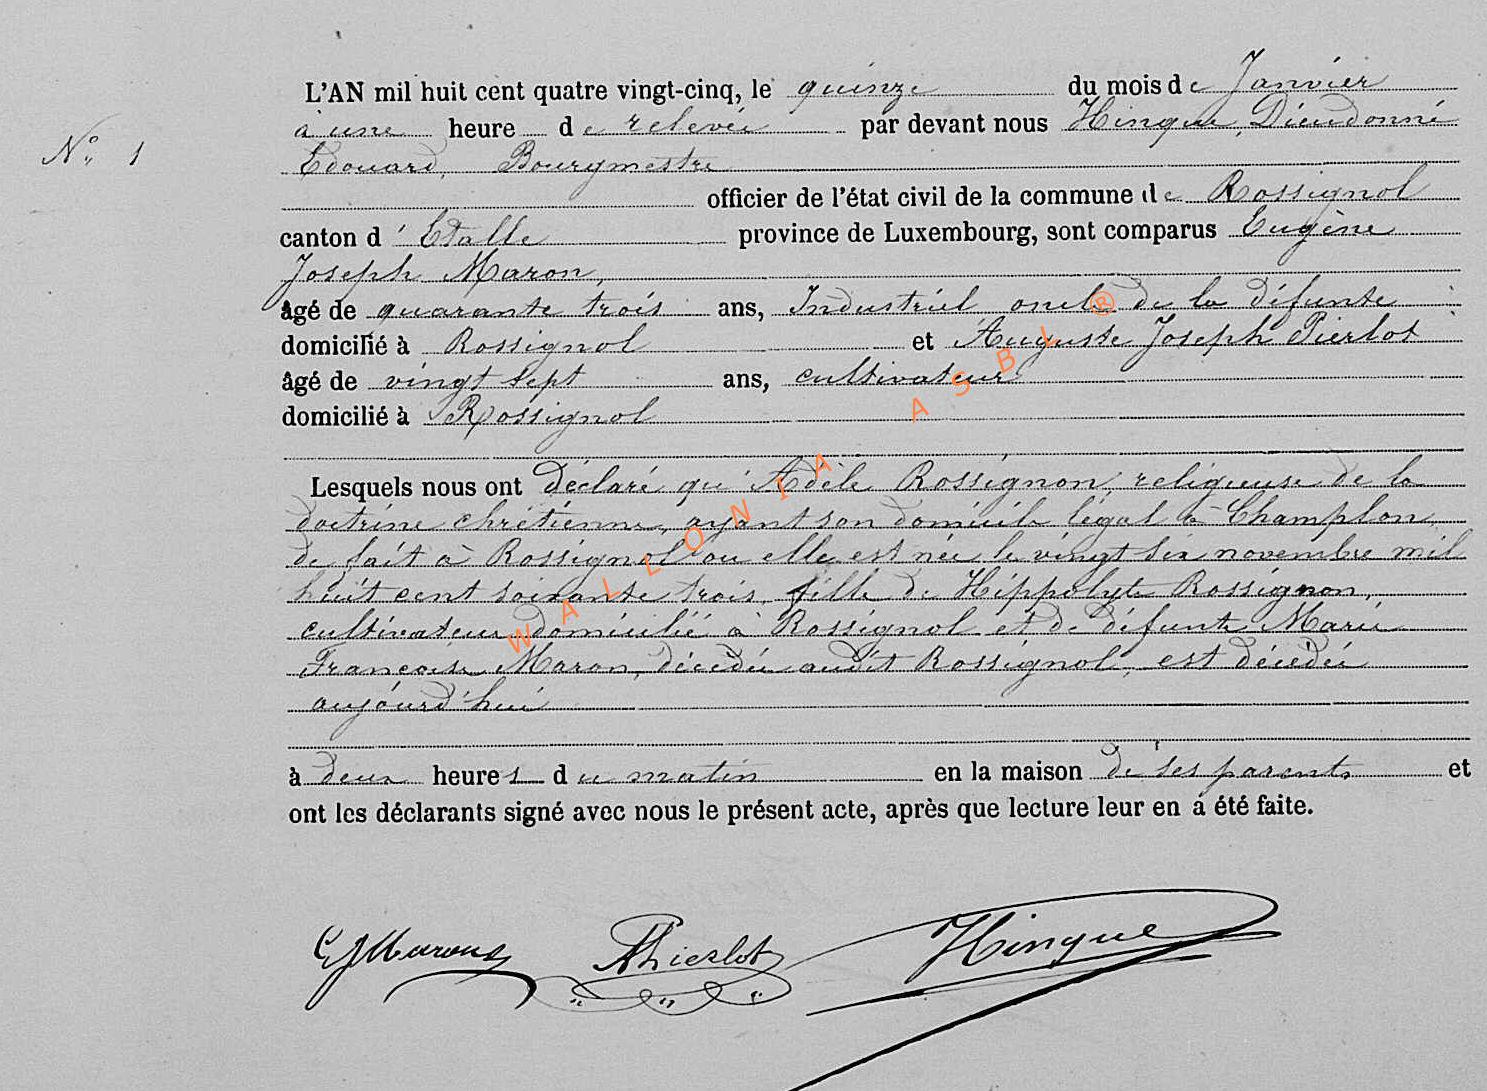 L'AN mil huit cent quatre vingt-cinq, le quinze du mois de Janvier
N° 1
à une heure de relevée par devant nous Hinque, Dieudonné
Edouard, Bourgmestre
officier de l'état civil de la commune de Rossignol
canton d'Etalle province de Luxembourg, sont comparus Eugène
Joseph Maron,
âgé de quarante trois ans, Industriel oncle de la défunte
domicilié à Rossignol et Auguste Joseph Pierlot
âgé de vingt sept ans, cultivateur
domicilié à Rossignol
Lesquels nous ont déclaré qu'Adèle Rossignon, religieuse de la
doctrine chrétienne, ayant son domicile légal à Champlon,
de fait à Rossignol ou elle est née le vingt six novembre mil
huit cent soixante trois, fille de Hippolyte Rossignon,
cultivateur domicilié à Rossignol et de défunte Marie
Françoise Maron, décédée audit Rossignol, est décédée
aujourd'hui
à deux heures du matin en la maison de ses parents et
ont les déclarants signé avec nous le présent acte, après que lecture leur en a été faite.
EJMaron Pierlot Hinque
WALLONIA ASBL ®